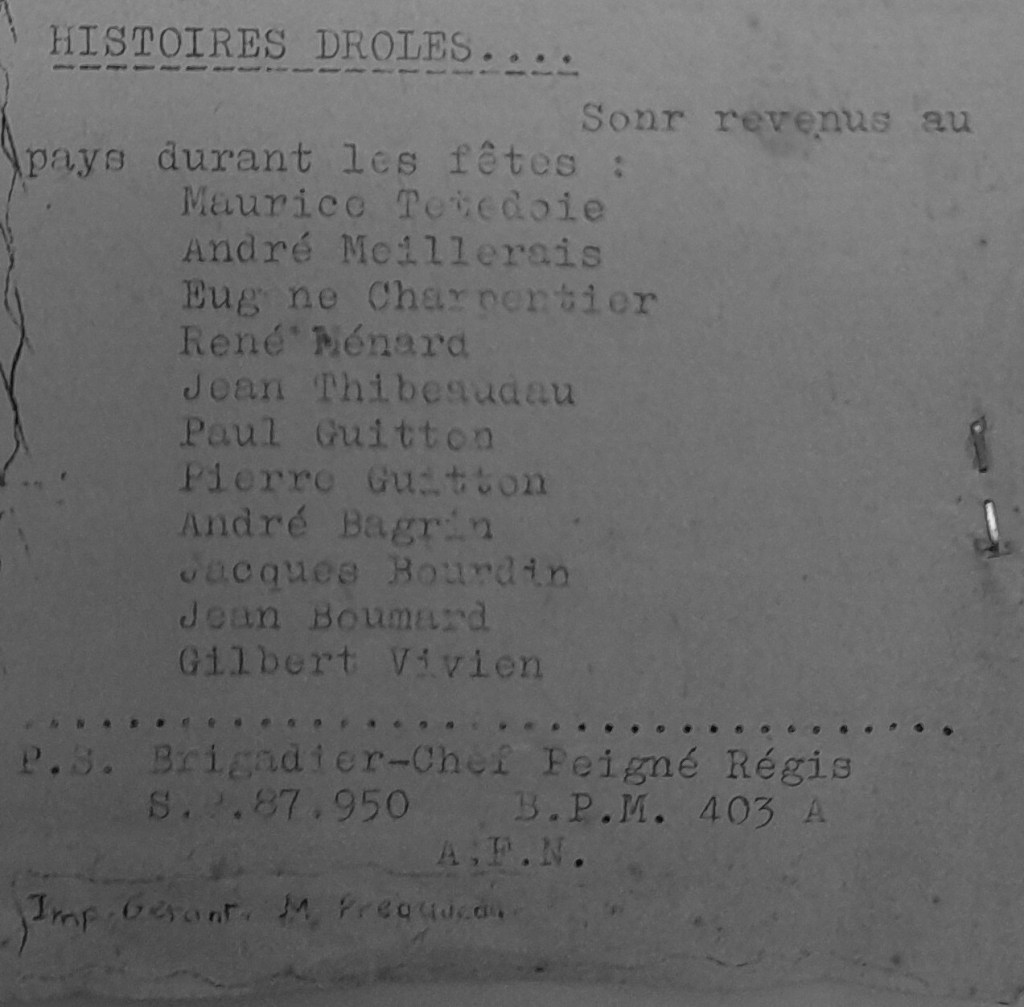 HISTOIRES DROLES....
Sonr revenus au
pays durant les fêtes :
Maurice Tetedoie
André Meillerais
Eugène Charpentier
René Ménard
Jean Thibeaudau
Paul Guitton
Pierre Guitton
André Bagrin
Jacques Bourdin
Jean Boumard
Gilbert Vivien
........................................
P.S. Brigadier-Chef Peigné Régis
87.950 B.P.M. 403 A
A.F.N.
Imp. Gérant. M.